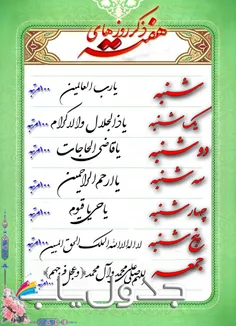 ذکر روزهای هفته
شنبه یارب العالمین ۱۰۰مرتبه
یک شنبه یاذالجلال والاکرام ۱۰۰مرتبه
دوشنبه یاقاضی الحاجات ۱۰۰مرتبه
سه شنبه یاارحم الراحمین ۱۰۰مرتبه
چهارشنبه یاحی یاقیوم ۱۰۰مرتبه
پنج شنبه لا اله الا الله الملک الحق المبین ۱۰۰مرتبه
جمعه اللهم صل علی محمد وآل محمد (وعجل فرجهم) ۱۰۰مرتبه
جدول یاب